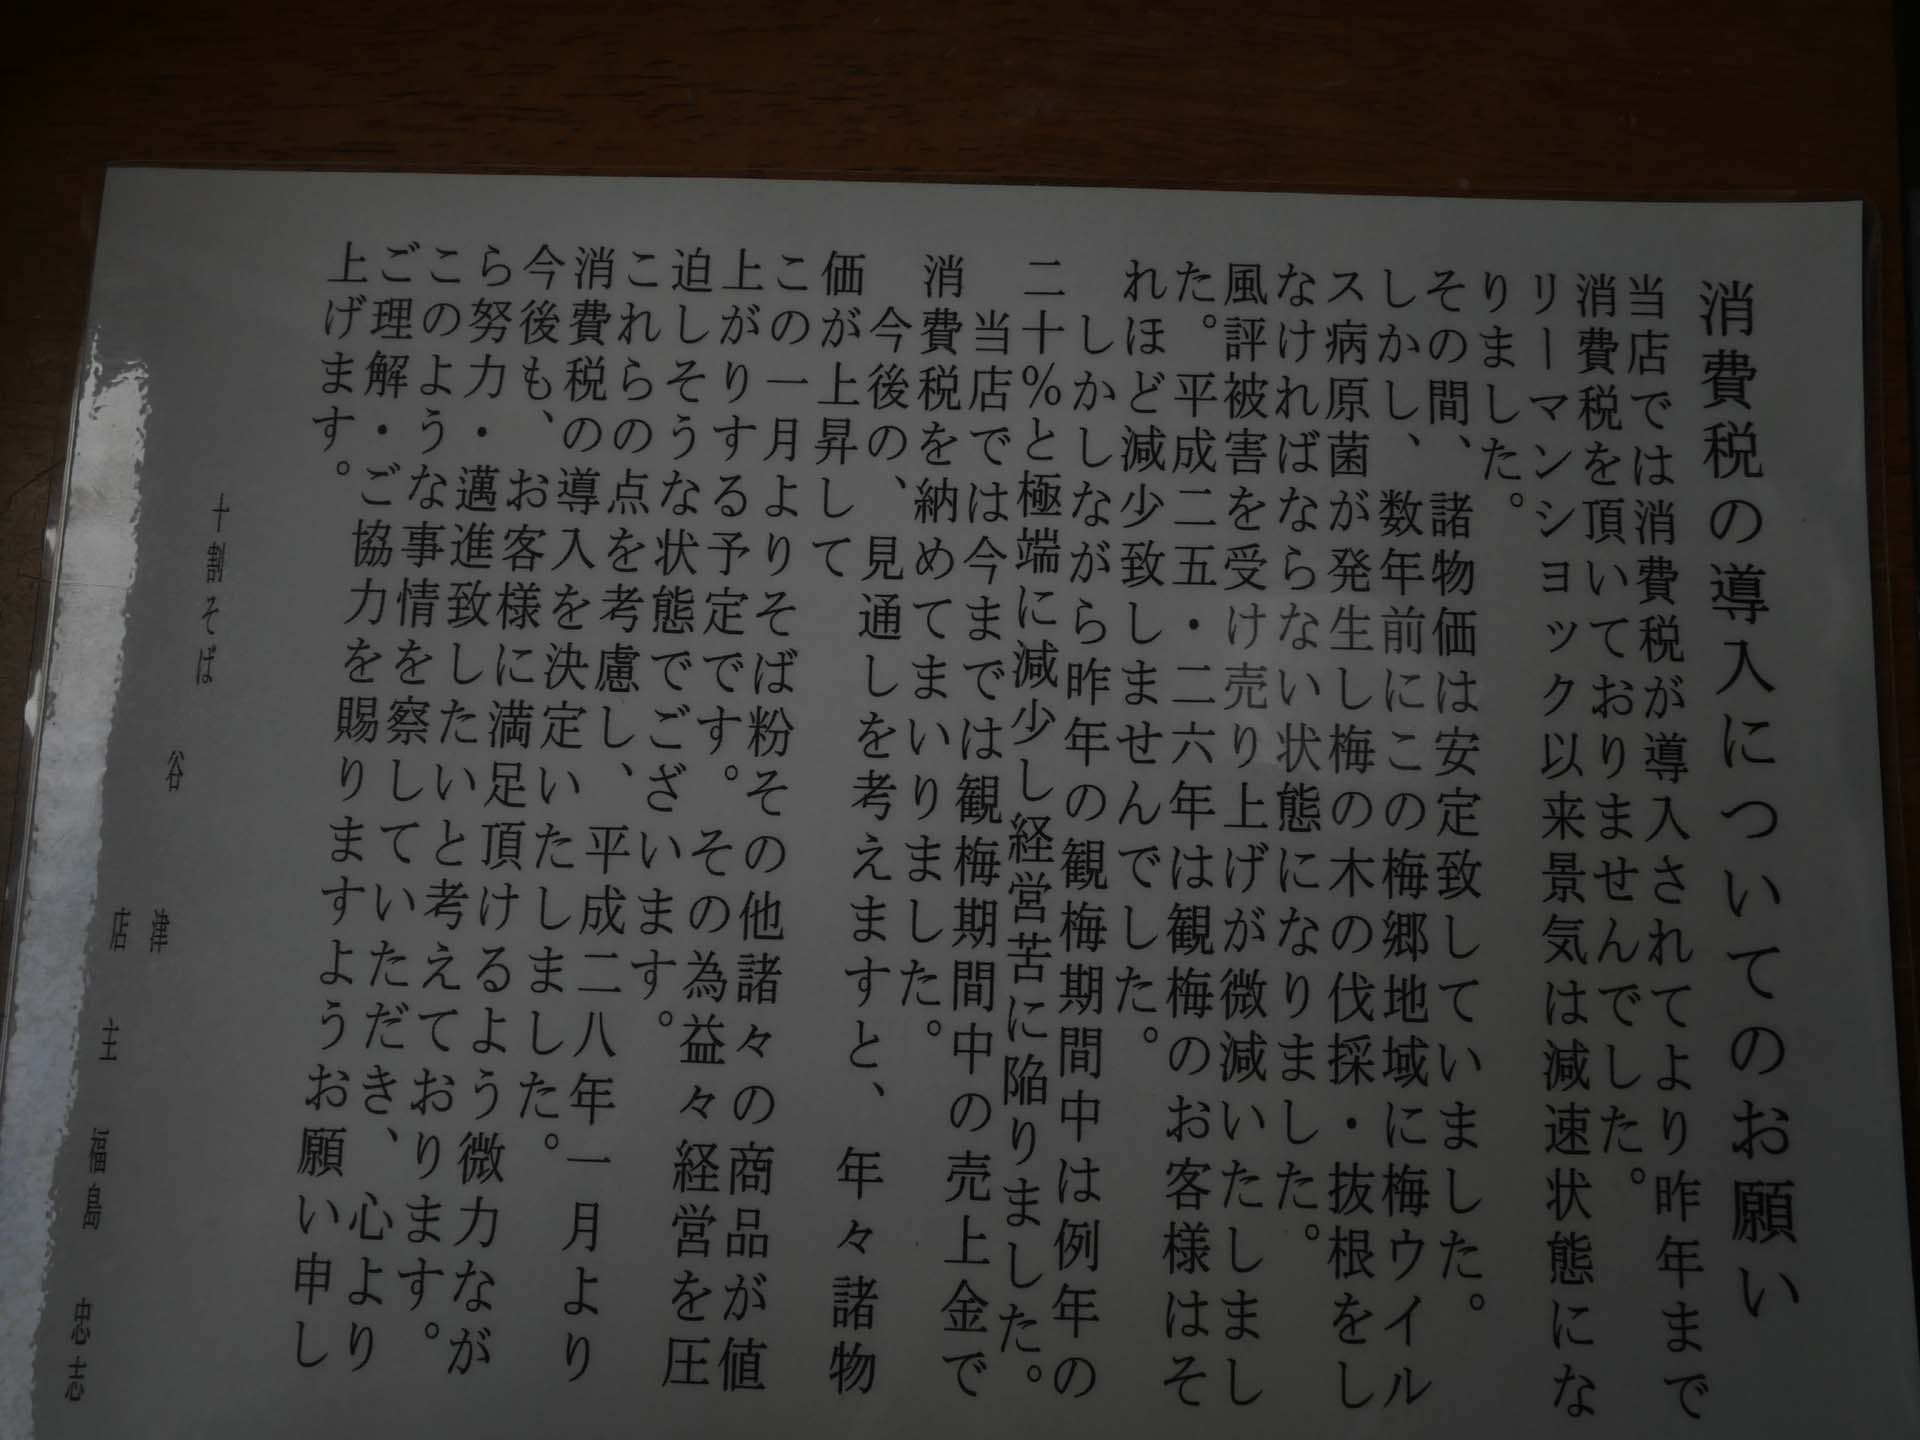 消費税の導入についてのお願い
当店では消費税が導入されてより昨年まで
消費税を頂いておりませんでした。
リーマンショック以来景気は減速状態にな
りました。
その間、諸物価は安定致していました。
しかし、数年前にこの梅郷地域に梅ウイル
ス病原菌が発生し梅の木の伐採・抜根をし
なければならない状態になりました。
風評被害を受け売り上げが微減いたしまし
た。平成二五・二六年は観梅のお客様はそ
れほど減少致しませんでした。
しかしながら昨年の観梅期間中は例年の
二十%と極端に減少し経営苦に陥りました。
当店では今までは観梅期間中の売上金で
消費税を納めてまいりました。
今後の、見通しを考えますと、年々諸物
価が上昇して
この一月よりそば粉その他諸々の商品が値
上がりする予定です。その為益々経営を圧
迫しそうな状態でございます。
これらの点を考慮し、平成二八年一月より
消費税の導入を決定いたしました。
今後も、お客様に満足頂けるよう微力なが
ら努力・邁進致したいと考えております。
このような事情を察していただき、心より
ご理解・ご協力を賜りますようお願い申し
上げます。
十割そば
谷津
店主 福島 忠志